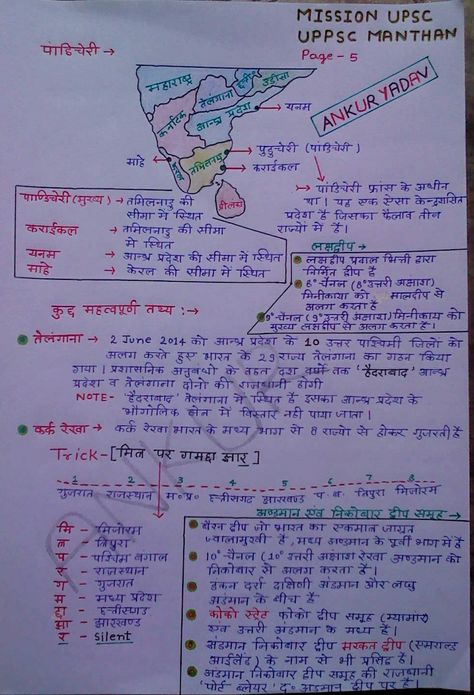 MISSION UPSC
UPPSC MANTHAN
Page - 5
ANKUR YADAV
पांडिचेरी →
महाराष्ट्र
तेलंगाना
उड़ीसा
कर्नाटक
आन्ध्र प्रदेश
→ यनम
केरल
तमिलनाडु
माहे
→ पुदुचेरी (पांडिचेरी)
कराईकल
श्रीलंका
→ पांडिचेरी फ्रांस के अधीन
था। यह एक ऐसा केन्द्रशासित
प्रदेश है जिसका फैलाव तीन
राज्यों में है।
पाण्डिचेरी (मुख्य) → तमिलनाडु की
सीमा में स्थित
कराईकल → तमिलनाडु की सीमा
में स्थित
यनम → आन्ध्र प्रदेश की सीमा में स्थित
माहे → केरल की सीमा में स्थित
लक्षदीप →
लक्षदीप प्रवाल भित्ती द्वारा
निर्मित द्वीप है
8° चैनल (8° उत्तरी अक्षांश)
मिनीकाय को मालदीप से
अलग करता है।
9° चैनल (9° उत्तरी अक्षांश) मिनीकाय को
मुख्य लक्षदीप से अलग करता है।
कुछ महत्वपूर्ण तथ्य :→
तेलंगाना → 2 June 2014 को आन्ध्र प्रदेश के 10 उत्तर पश्चिमी जिलों को
अलग करते हुए भारत के 29 राज्य तेलंगाना का गठन किया
गया। प्रशासनिक अनुबंधो के तहत दश वर्षो तक 'हैदराबाद' आन्ध्र
प्रदेश व तेलंगाना दोनो की राजधानी होगी
NOTE- 'हैदराबाद' तेलंगाना में स्थित है इसका आन्ध्र प्रदेश के
भौगोलिक क्षेत्र में विस्तार नही पाया जाता।
कर्क रेखा → कर्क रेखा भारत के मध्य भाग से 8 राज्यो से होकर गुजरती है
Trick-[मित्र पर गमछा झार]
1 2 3 4 5 6 7 8
गुजरात राजस्थान म० प्र० छत्तीसगढ़ झारखण्ड प. ब. त्रिपुरा मिजोरम
मि - मिजोरम
त्र - त्रिपुरा
प - पश्चिम बंगाल
र - राजस्थान
ग - गुजरात
म - मध्य प्रदेश
छा - छत्तीसगढ़
झा - झारखण्ड
र - Silent
अण्डमान एवं निकोबार द्वीप समूह →
बैरन द्वीप जो भारत का एकमात्र जाग्रत
ज्वालामुखी है, मध्य अण्डमान के पूर्वी भाग में है
10° चैनल (10° उत्तरी अक्षांश रेखा अण्डमान को
निकोबार से अलग करता है।
डंकन दर्रा दक्षिणी अंडमान और लघु
अंडमान के बीच है
कोको स्ट्रेट कोको द्वीप समूह (म्यामांर)
एवं उत्तरी अंडमान के मध्य है।
अंडमान निकोबार द्वीप मरकत द्वीप (एमराल्ड
आईलैंड) के नाम से भी प्रसिद्ध है।
अंडमान निकोबार द्वीप समूह की राजधानी
'पोर्ट ब्लेयर' द० अंडमान द्वीप पर है।
ANKUR